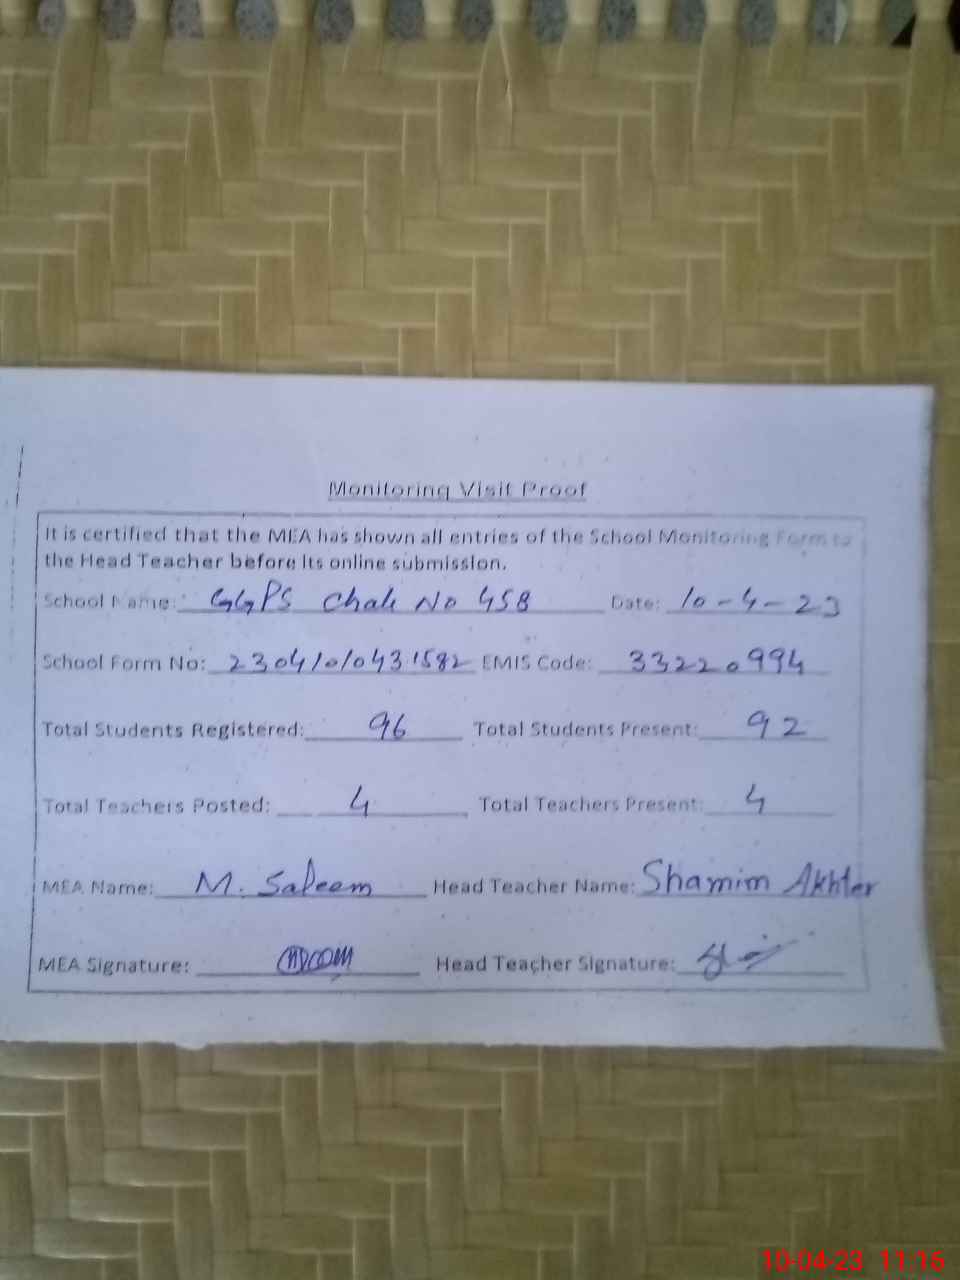 Monitoring Visit Proof
It is certified that the MEA has shown all entries of the School Monitoring Form to
the Head Teacher before its online submission.
School Name: GGPS Chak No 458 Date: 10-4-23
School Form No: 2304101010431582 EMIS Code: 33220994
Total Students Registered: 96 Total Students Present: 92
Total Teachers Posted: 4 Total Teachers Present: 4
MEA Name: M. Saleem Head Teacher Name: Shamim Akhter
MEA Signature: Head Teacher Signature:
10-04-23 11:16